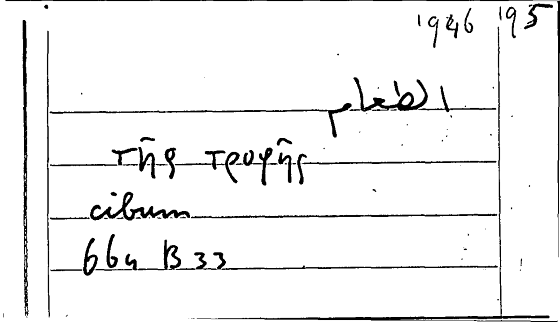 1946 195
الطعام
τῆς τροφῆς
cibum
664 B 33